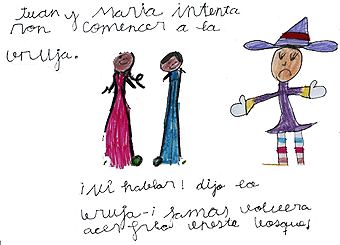 tuan y Maria intenta
ron comencer a la
vruja.
¡Ni hablar! dijo la
vruja-¡ jamas volvera
acer frio enesta vosque!